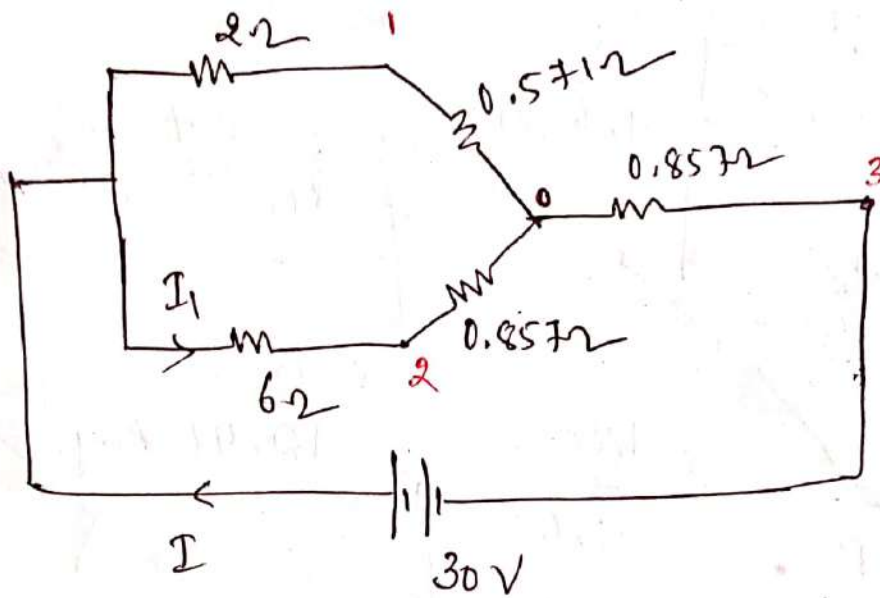 2Ω
1
0.571Ω
0.857Ω
3
0
I₁
0.857Ω
2
6Ω
I
30V